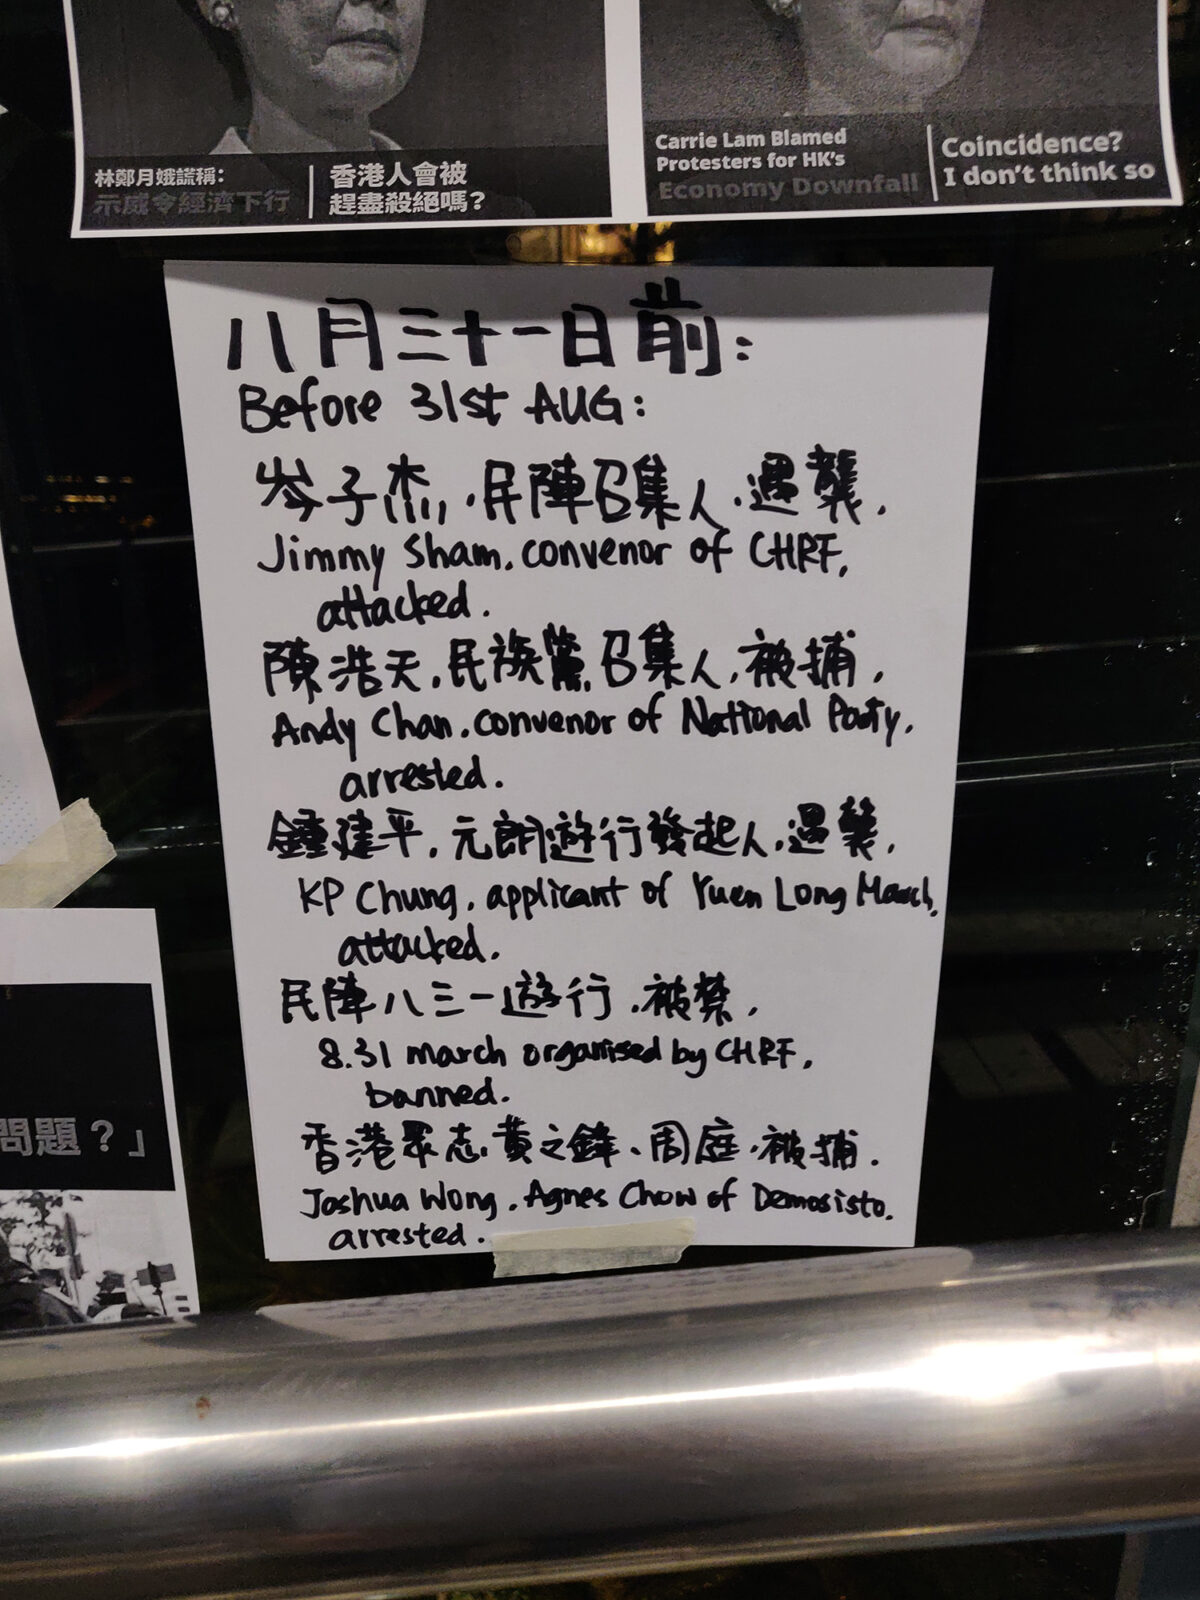 林鄭月娥謊稱：
示威令經濟下行
香港人會被
趕盡殺絕嗎？
Carrie Lam Blamed
Protesters for HK's
Economy Downfall
Coincidence?
I don't think so
八月三十一日前：
Before 31st AUG:
岑子杰，民陣召集人，遇襲，
Jimmy Sham, convenor of CHRF,
attacked.
陳浩天，民族黨召集人，被捕，
Andy Chan, convenor of National Party,
arrested.
鍾建平，元朗遊行發起人，遇襲，
KP Chung, applicant of Yuen Long March,
attacked.
民陣八三一遊行，被禁，
8.31 march organised by CHRF,
banned.
香港眾志，黃之鋒、周庭，被捕．
Joshua Wong, Agnes Chow of Demosisto,
arrested.
問題？」